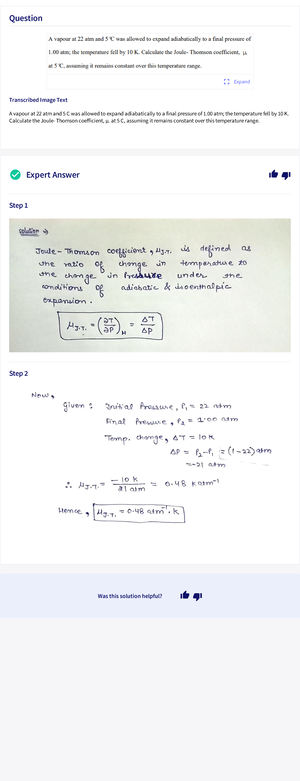 Question
A vapour at 22 atm and 5 °C was allowed to expand adiabatically to a final pressure of
1.00 atm; the temperature fell by 10 K. Calculate the Joule- Thomson coefficient, μ
at 5 °C, assuming it remains constant over this temperature range.
Expand
Transcribed Image Text
A vapour at 22 atm and 5 °C was allowed to expand adiabatically to a final pressure of 1.00 atm; the temperature fell by 10 K.
Calculate the Joule- Thomson coefficient, μ, at 5 C, assuming it remains constant over this temperature range.
Expert Answer
Step 1
Solution →
Joule-Thomson coefficient, μJ.T. is defined as
the ratio of change in temperature to
the change in Pressure under the
conditions of adiabatic & isoenthalpic
expansion.
μJ.T. = (∂T/∂P)H = ΔT/ΔP
Step 2
Now,
Given : Initial Pressure, P1 = 22 atm
Final Pressure, P2 = 1.00 atm
Temp. change, ΔT = 10K
ΔP = P2-P1 = (1-22)atm
=-21 atm
∴ μJ.T. = -10 K / 21 atm = 0.48 K atm⁻¹
Hence, μJ.T. = 0.48 atm⁻¹.K
Was this solution helpful?